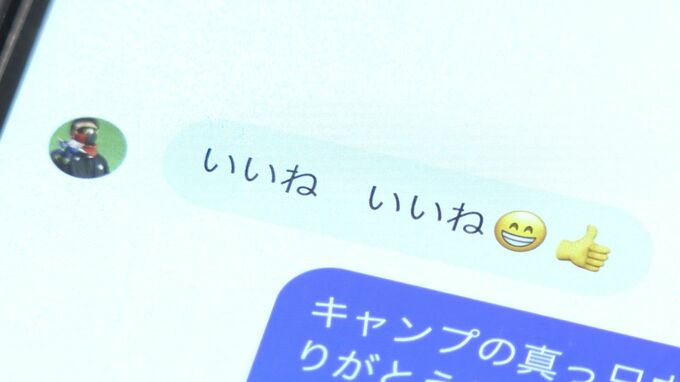 いいね　いいね😁👍
キャンプの真っ
りがとう